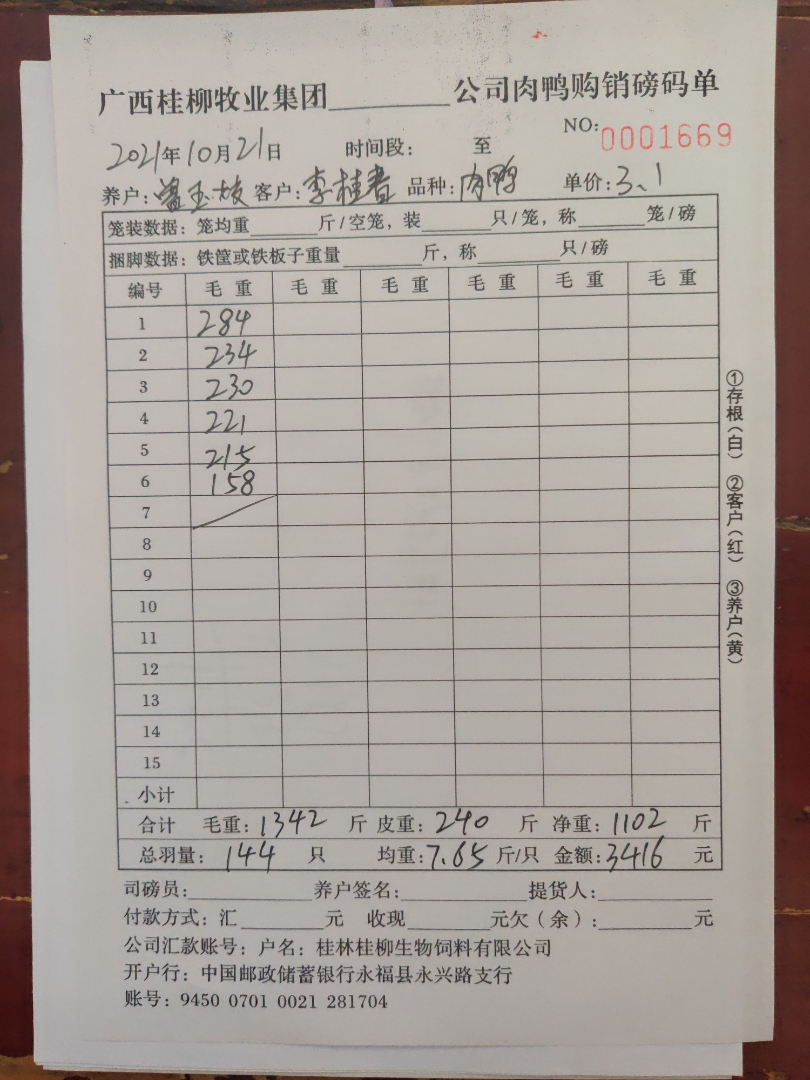 广西桂柳牧业集团________公司肉鸭购销磅码单
NO: 0001669
2021年10月21日 时间段: 至
养户: 玉枝 客户: 李桂春 品种: 肉鸭 单价: 3.1
笼装数据: 笼均重______斤/空笼, 装______只/笼, 称______笼/磅
捆脚数据: 铁筐或铁板子重量______斤, 称______只/磅
编号 毛重 毛重 毛重 毛重 毛重 毛重
1 284
2 234
3 230
4 221
5 215
6 158
7
8
9
10
11
12
13
14
15
小计
合计 毛重: 1342 斤 皮重: 240 斤 净重: 1102 斤
总羽量: 144 只 均重: 7.65 斤/只 金额: 3416 元
司磅员:________ 养户签名:________ 提货人:________
付款方式: 汇______元 收现______元欠(余):______元
公司汇款账号: 户名: 桂林桂柳生物饲料有限公司
开户行: 中国邮政储蓄银行永福县永兴路支行
账号: 9450 0701 0021 281704
①存根(白) ②客户(红) ③养户(黄)